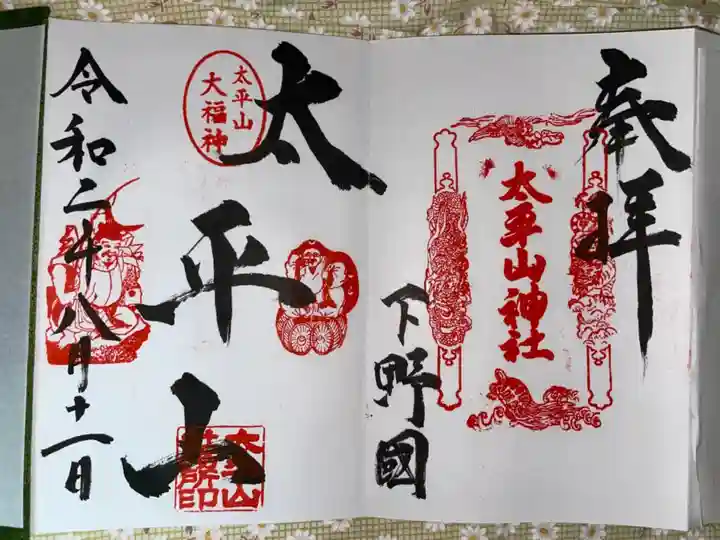 奉拝
太平山神社
下野國
太平山
太平山
大福神
太平山
令和二年八月十一日